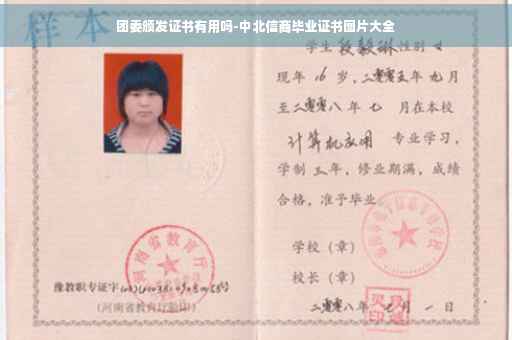 团委颁发证书有用吗-中北信商毕业证书图片大全
样本
学生 段毅琳 性别 女
现年 16 岁，二零零五年 九 月
至二零零八年 七 月在本校
计算机应用 专业学习，
学制 三 年，修业期满，成绩
合格，准予毕业
学校（章）
校长（章）
二零零八年 七 月 一 日
河南省教育厅
豫教职专证字
（河南省教育厅验印）